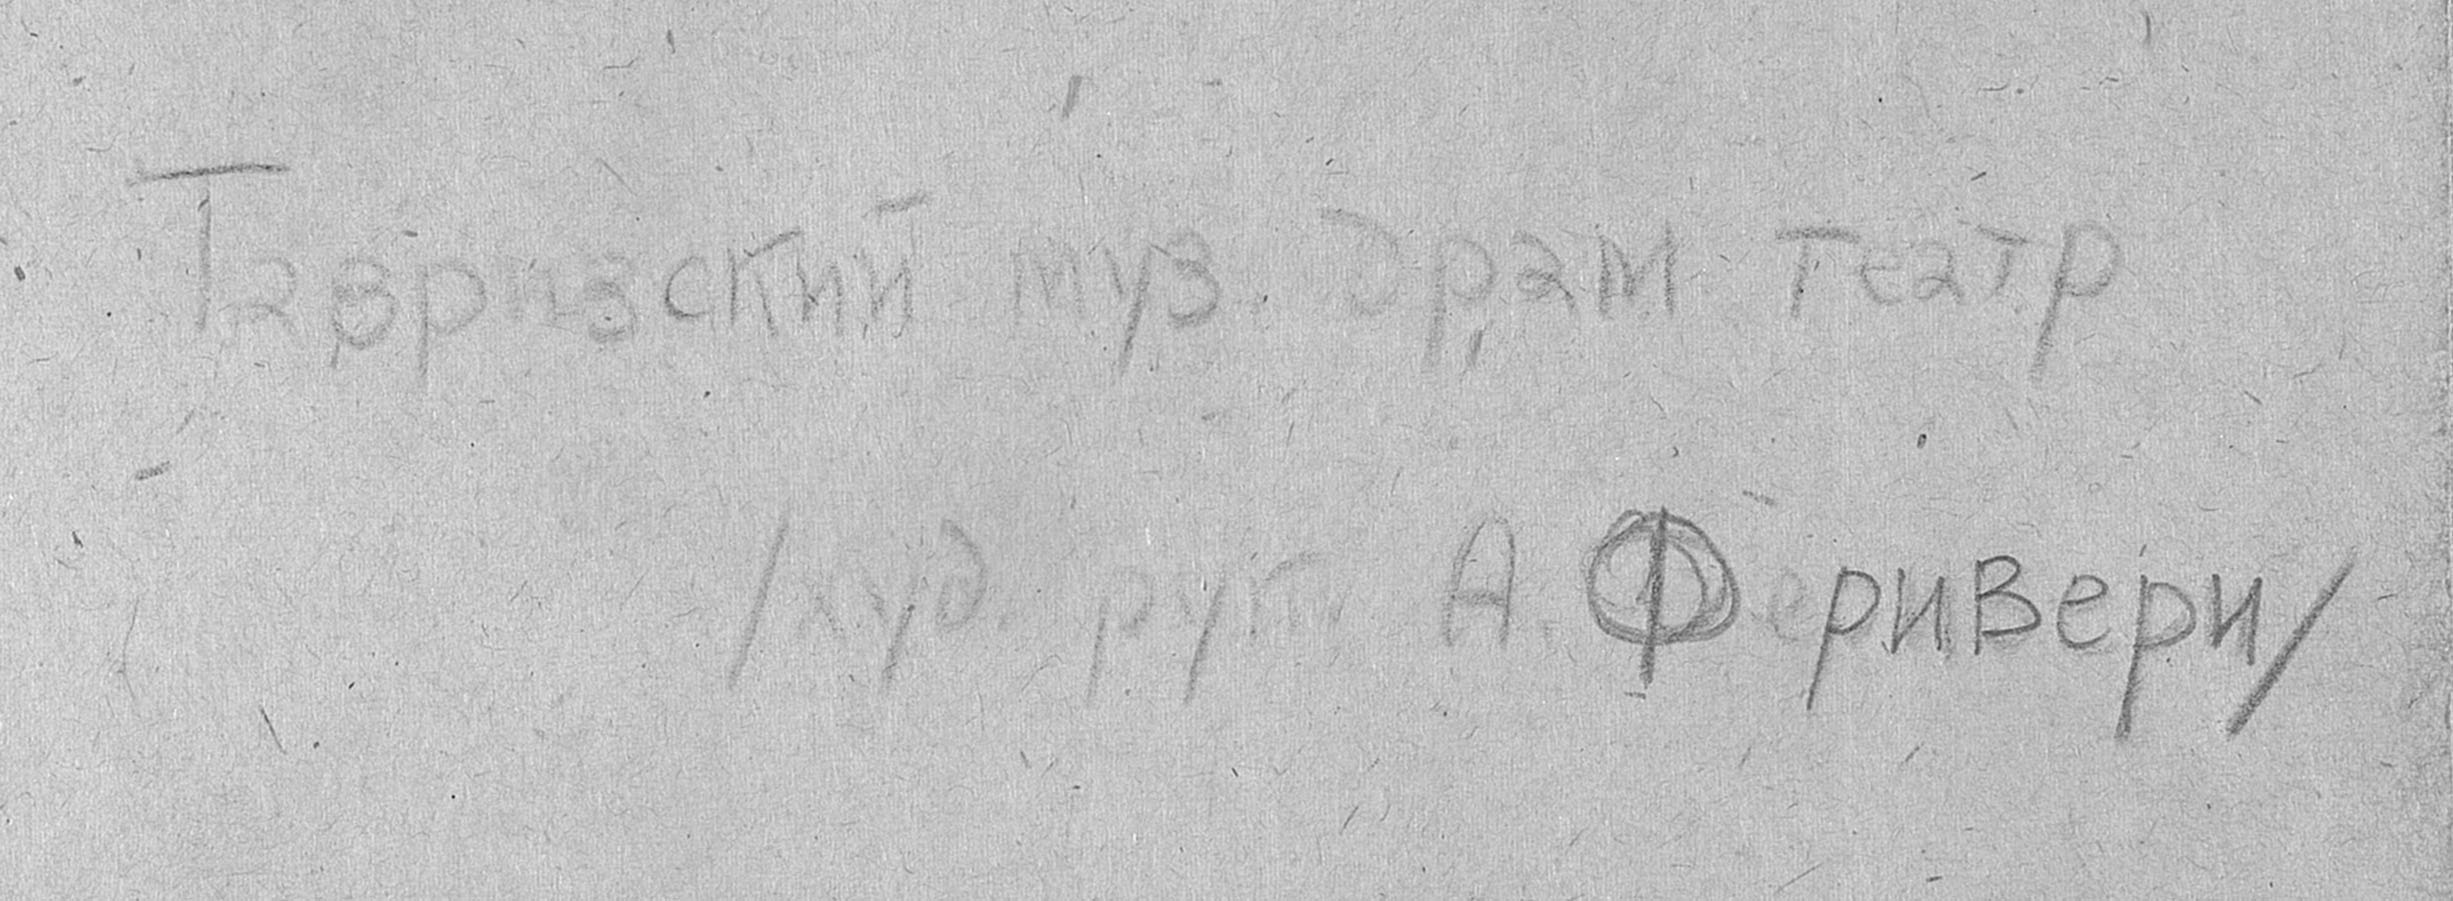 Тавризский муз. драм театр
/худ. рук. А. Феривери/